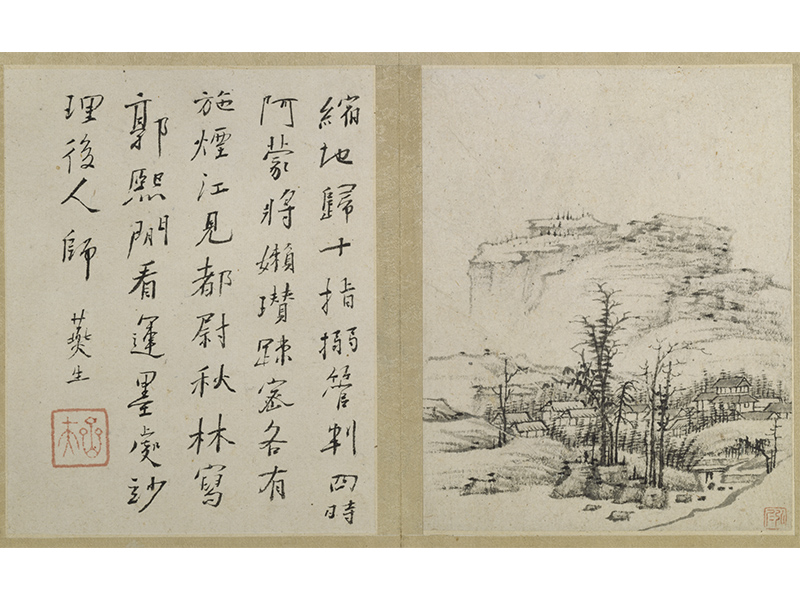 縮地歸十指搦管判四時
阿蒙將嬾瓚踈密各有
施煙江見都尉秋林寫
郭熙閒看運墨處妙
理後人師
生